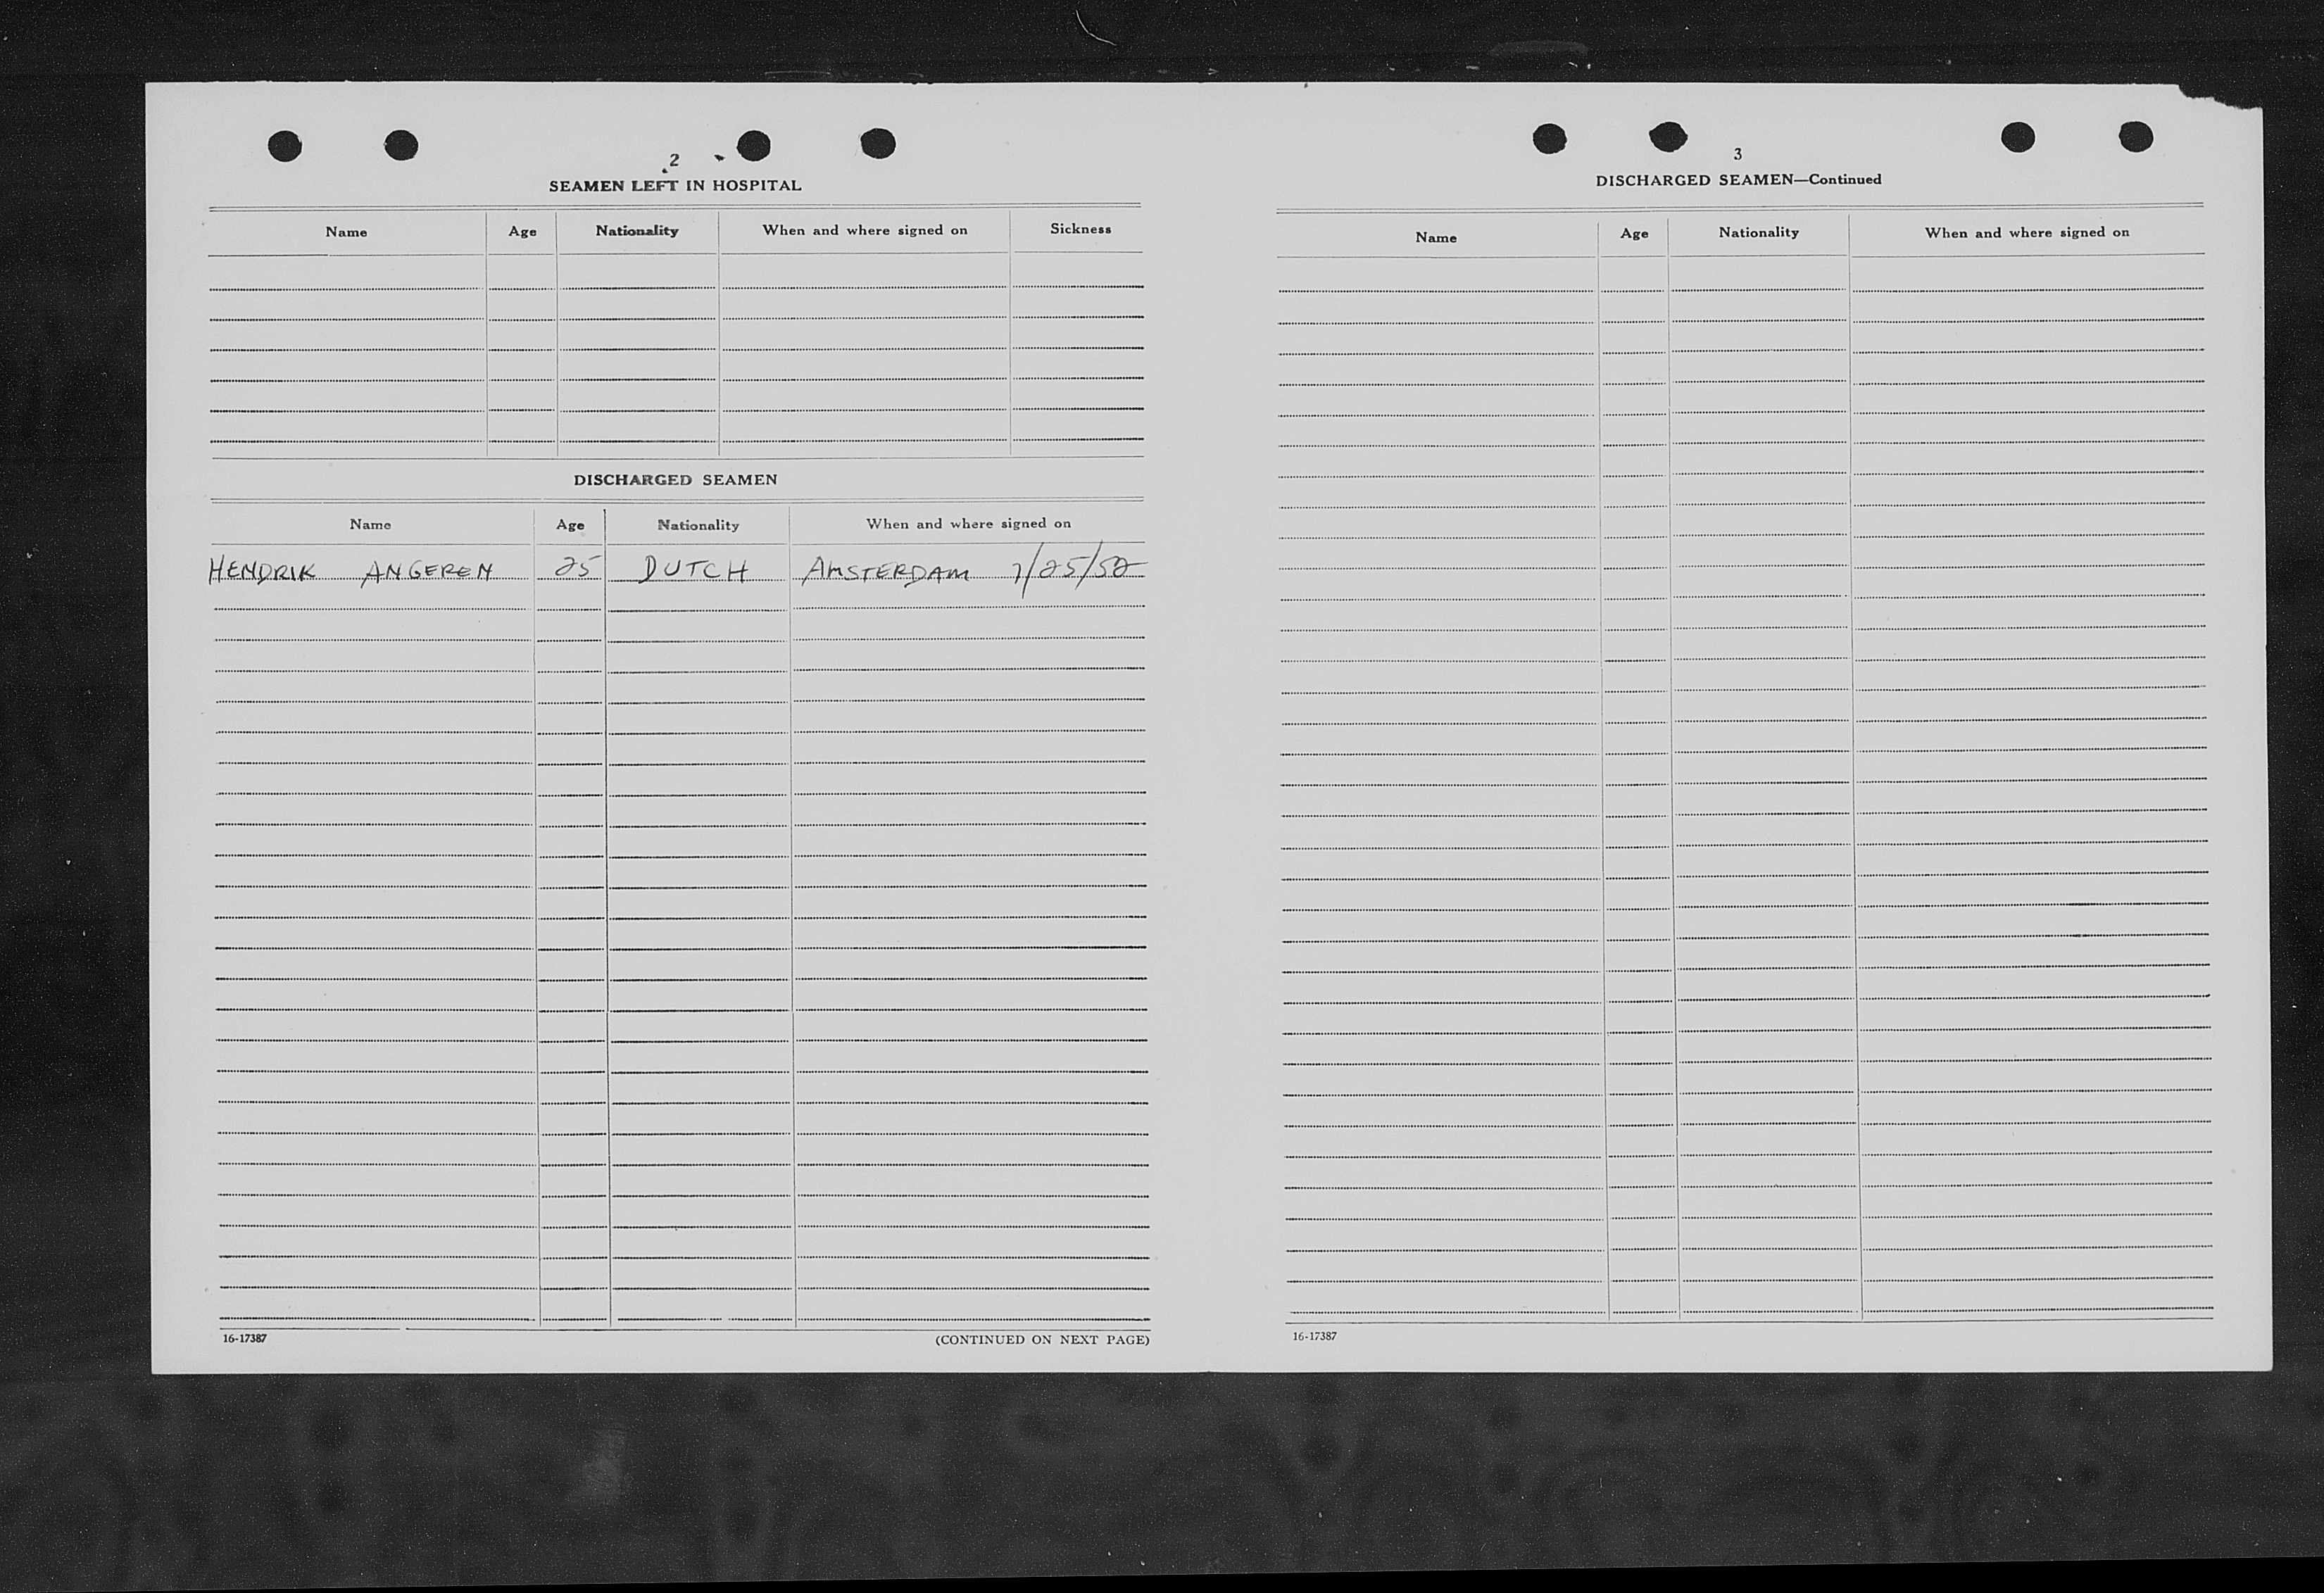 2
SEAMEN LEFT IN HOSPITAL
Name Age Nationality When and where signed on Sickness
DISCHARGED SEAMEN
Name Age Nationality When and where signed on
HENDRIK ANGEREN 25 DUTCH AMSTERDAM 7/25/52
16-17387 (CONTINUED ON NEXT PAGE)
3
DISCHARGED SEAMEN—Continued
Name Age Nationality When and where signed on
16-17387